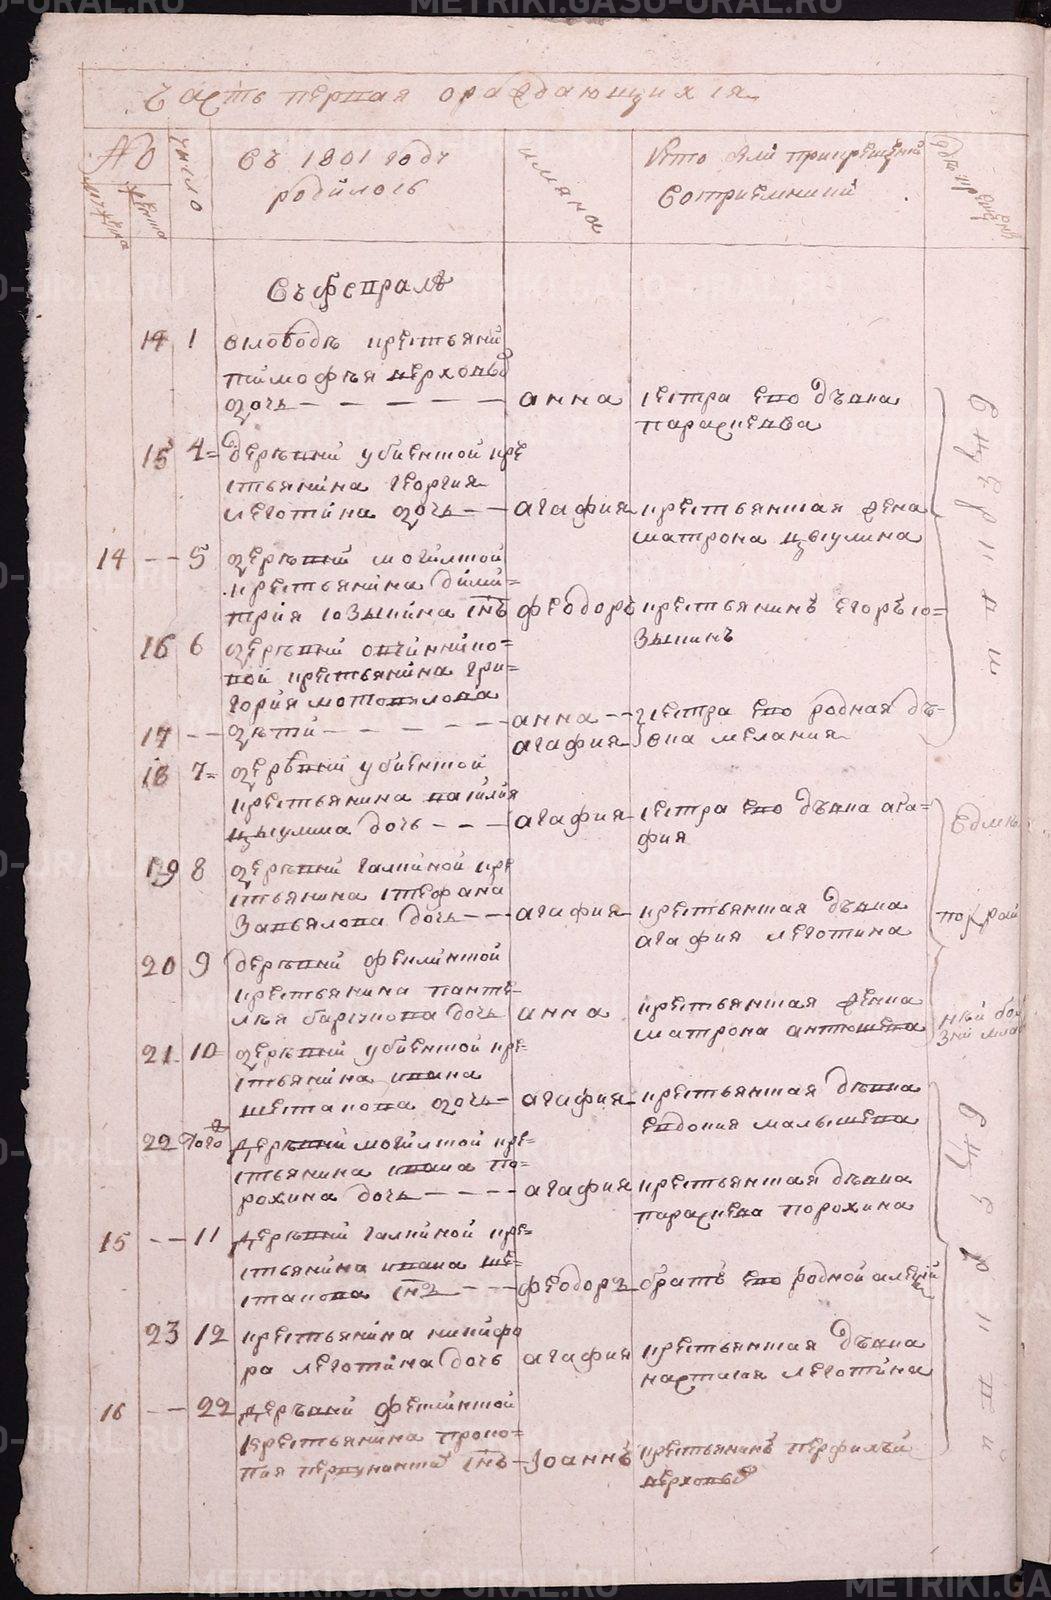 Часть первая о раждающихся
№
мужеска
женска
число
Въ 1801 годъ
родилось
имяна
Кто были при крещенїи
восприемники
Въ февралѣ
14 1 Слободы крестьянина
Тимофѣя Верховых
дочь — — — — — анна сестра ево дѣвка
Парасковья
15 4 деревни Убиенной кре
стьянина Георгия
Леготина дочь — — агафия крестьянская жена
Матрона Цыулина
14 — — 5 деревни Могилной
крестьянина Дими-
трия Юзыкина снъ феодоръ крестьянинъ Егоръ Ю-
зыкинъ
16 6 деревни Овчинников-
вой крестьянина Гри-
гория Мотовилова
17 — — дѣти — — — — — анна — — сестра ево родная дѣ-
агафия вка Мелания
18 7 деревни Убиенной
крестьянина Василия
Цыулина дочь — — — агафия сестра ево дѣвка ага-
фия
19 8 деревни Галкиной кре
стьянина Стефана
Завьялова дочь — — агафия крестьянская дѣвка
Агафия Леготина
20 9 деревни
крестьянина Панте-
лѣя дочь анна крестьянская женка
Матрона Антошева
21 10 деревни Убиенной кре-
стьянина Ивана
Шестакова дочь — агафия крестьянская дѣвка
Евдокия Малышева
22 того деревни Могилной кре-
стьянина Ивана По-
рохина дочь — — — — агафия крестьянская дѣвка
Параскева Порохина
15 — — 11 деревни Галкиной кре-
стьянина Ивана Ше-
стакова снъ — — — феодоръ братъ ево родной Алексѣй
23 12 крестьянина Никифо
ра Леготина дочь агафия крестьянская дѣвка
Настасия Леготина
16 — — 22 деревни
крестьянина Проко-
пия снъ — Iоаннъ крестьянинъ Перфилѣй
Верховых
METRIKI.GASO-URAL.RU